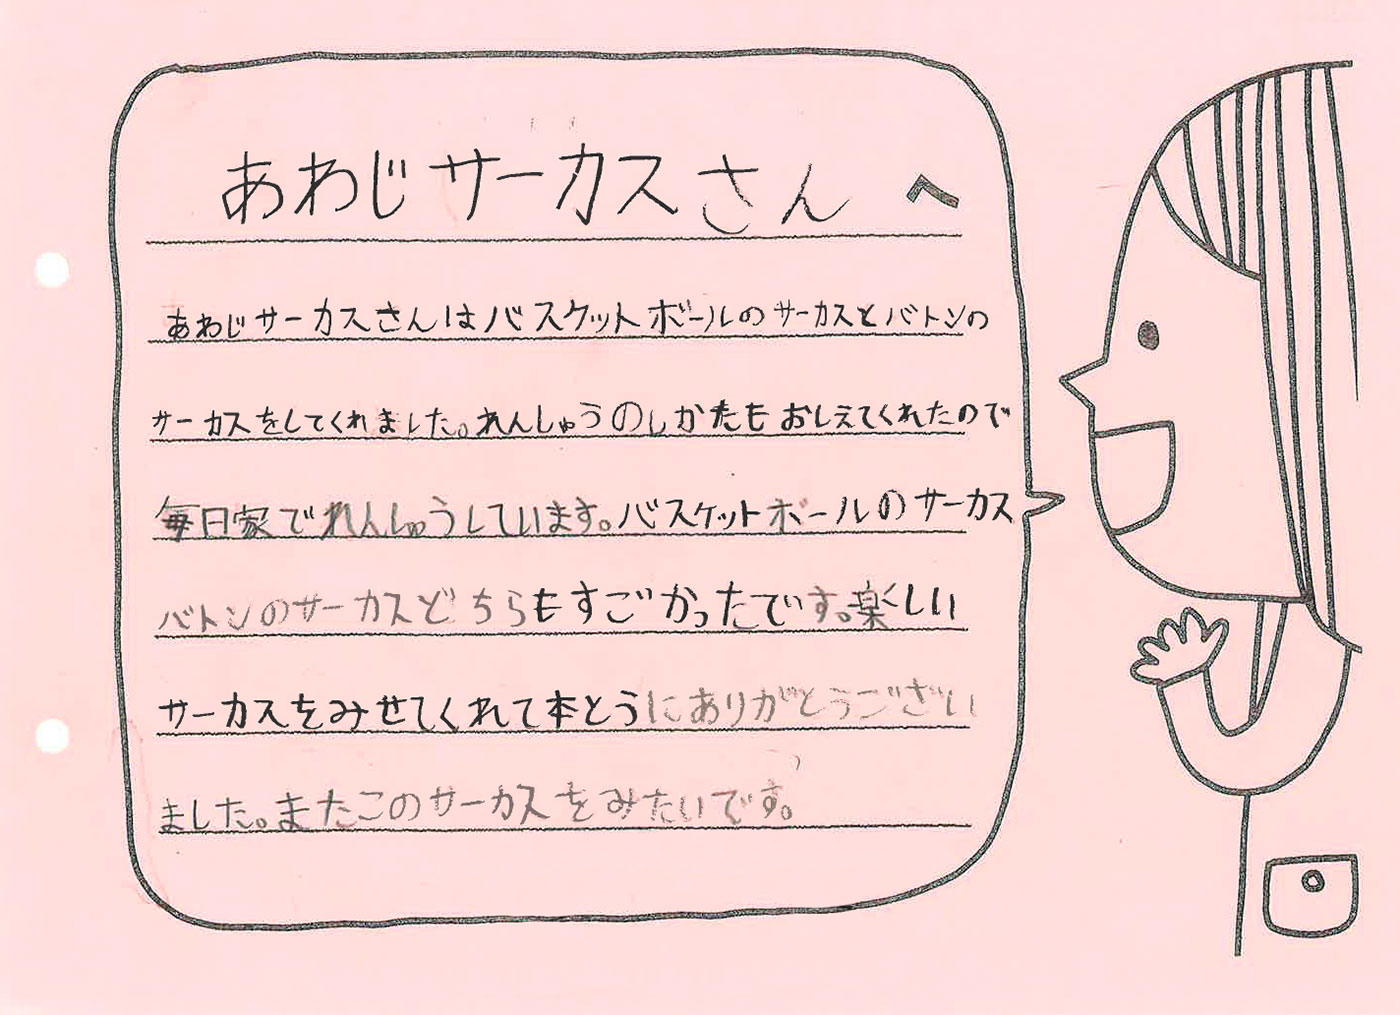 あわじサーカスさんへ
あわじサーカスさんはバスケットボールのサーカスとバトンの
サーカスをしてくれました。れんしゅうのしかたもおしえてくれたので
毎日家でれんしゅうしています。バスケットボールのサーカス
バトンのサーカスどちらもすごかったです。楽しい
サーカスをみせてくれて本とうにありがとうござい
ました。またこのサーカスをみたいです。